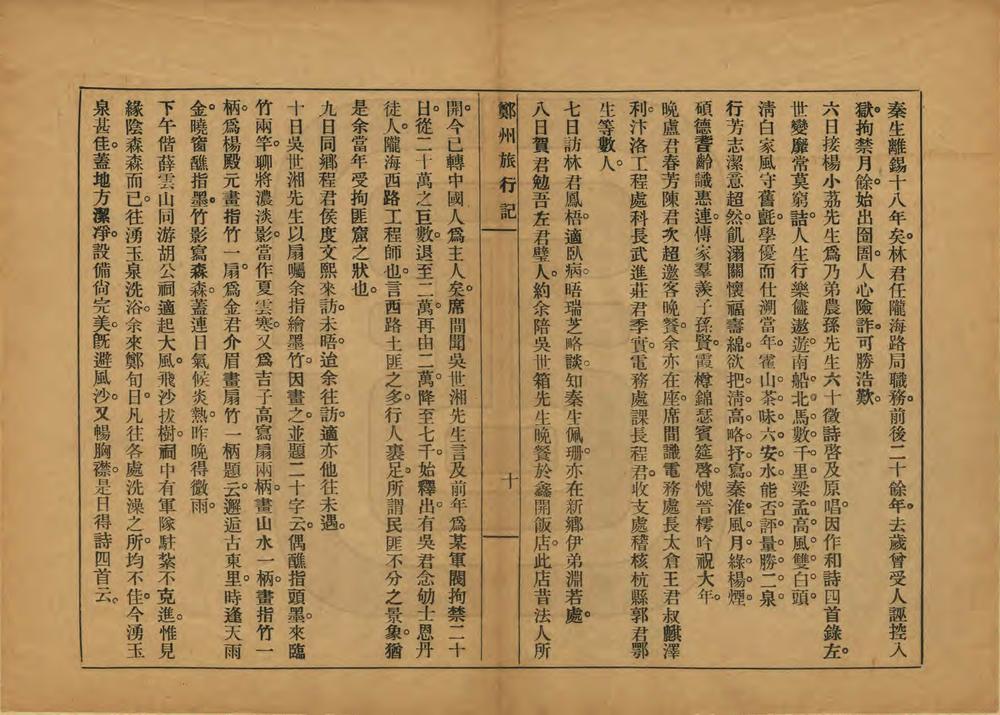 秦生離錫十八年矣。林君任隴海路局職務。前後二十餘年。去歲曾受人誣控入
獄。拘禁月餘。始出囹圄。人心險詐。可勝浩歎。
六日接楊小荔先生爲乃弟農孫先生六十徵詩啓及原唱。因作和詩四首錄左。
世變靡常莫窮詰。人生行樂儘遨遊。南船北馬數千里。梁孟高風雙白頭
清白家風守舊氈。學優而仕溯當年。霍山茶味六安水。能否評量勝二泉
行芳志潔意超然。飢溺關懷福壽綿。欲把清高略抒寫。秦淮風月綠楊煙。
碩德耆齡識惠連。傳家羣羨子孫賢。霞樽錦瑟賓筵啓。愧晉樗吟祝大年。
晚盧君春芳陳君次超邀客晚餐。余亦在座。席間識電務處長太倉王君叔麒。澤
利汴洛工程處科長武進莊君季實。電務處課長程君。收支處稽核杭縣郭君鄂
生等數人。
七日訪林君鳳梧。適臥病。晤瑞芝略談。知秦生佩珊亦在新鄉伊弟淵若處。
八日賀君勉吾左君璧人。約余陪吳世箱先生晚餐於鑫開飯店。此店昔法人所
鄭州旅行記
十
開。今已轉中國人爲主人矣。席間聞吳世湘先生言及前年爲某軍閥拘禁二十
日。從二十萬之巨數。退至二萬。再由二萬降至七千。始釋出。有吳君念劬士恩丹
徒人。隴海西路工程師也。言西路土匪之多。行人裹足。所謂民匪不分之景象。猶
是余當年受拘匪窟之狀也。
九日同鄉程君侯度文熙來訪未晤。迨余往訪。適亦他往未遇。
十日吳世湘先生以扇囑余指繪墨竹。因畫之。並題二十字云。偶醮指頭墨。來臨
竹兩竿。聊將濃淡影。當作夏雲寒。又爲吉子高寫扇兩柄。畫山水一柄。畫指竹一
柄。爲楊殿元畫指竹一扇。爲金君介眉畫扇竹一柄。題云。邂逅古東里。時逢天雨
金。曉窗醮指墨。竹影寫森森。蓋連日氣候炎熱。昨晚得微雨。
下午偕薛雲山同游胡公祠。適起大風。飛沙拔樹。祠中有軍隊駐紮不克進。惟見
綠陰森森而已。往湧玉泉洗浴。余來鄭旬日。凡往各處洗澡之所均不佳。今湧玉
泉甚佳。蓋地方潔凈。設備尙完美。旣避風沙。又暢胸襟。是日得詩四首云。